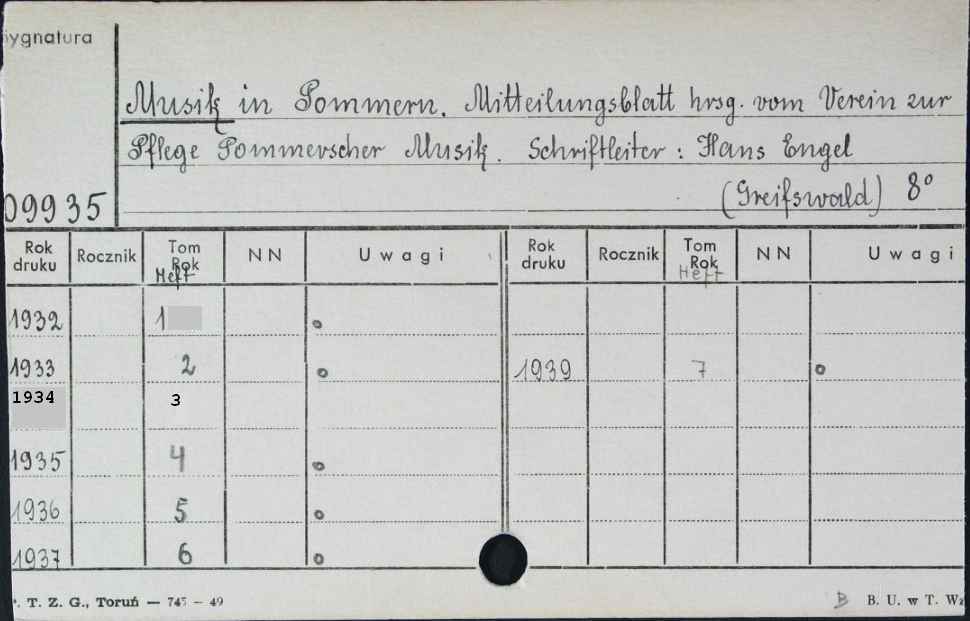 Sygnatura
Musik in Pommern. Mitteilungsblatt hrsg. vom Verein zur
Pflege Pommerscher Musik. Schriftleiter: Hans Engel
(Greifswald) 8°
09935
Rok druku Rocznik Tom Rok Heft NN Uwagi Rok druku Rocznik Tom Rok Heft NN Uwagi
1932 1
1933 2 1939 7
1934 3
1935 4
1936 5
1937 6
T. Z. G., Toruń — 745 — 49 B B. U. w T. Wz